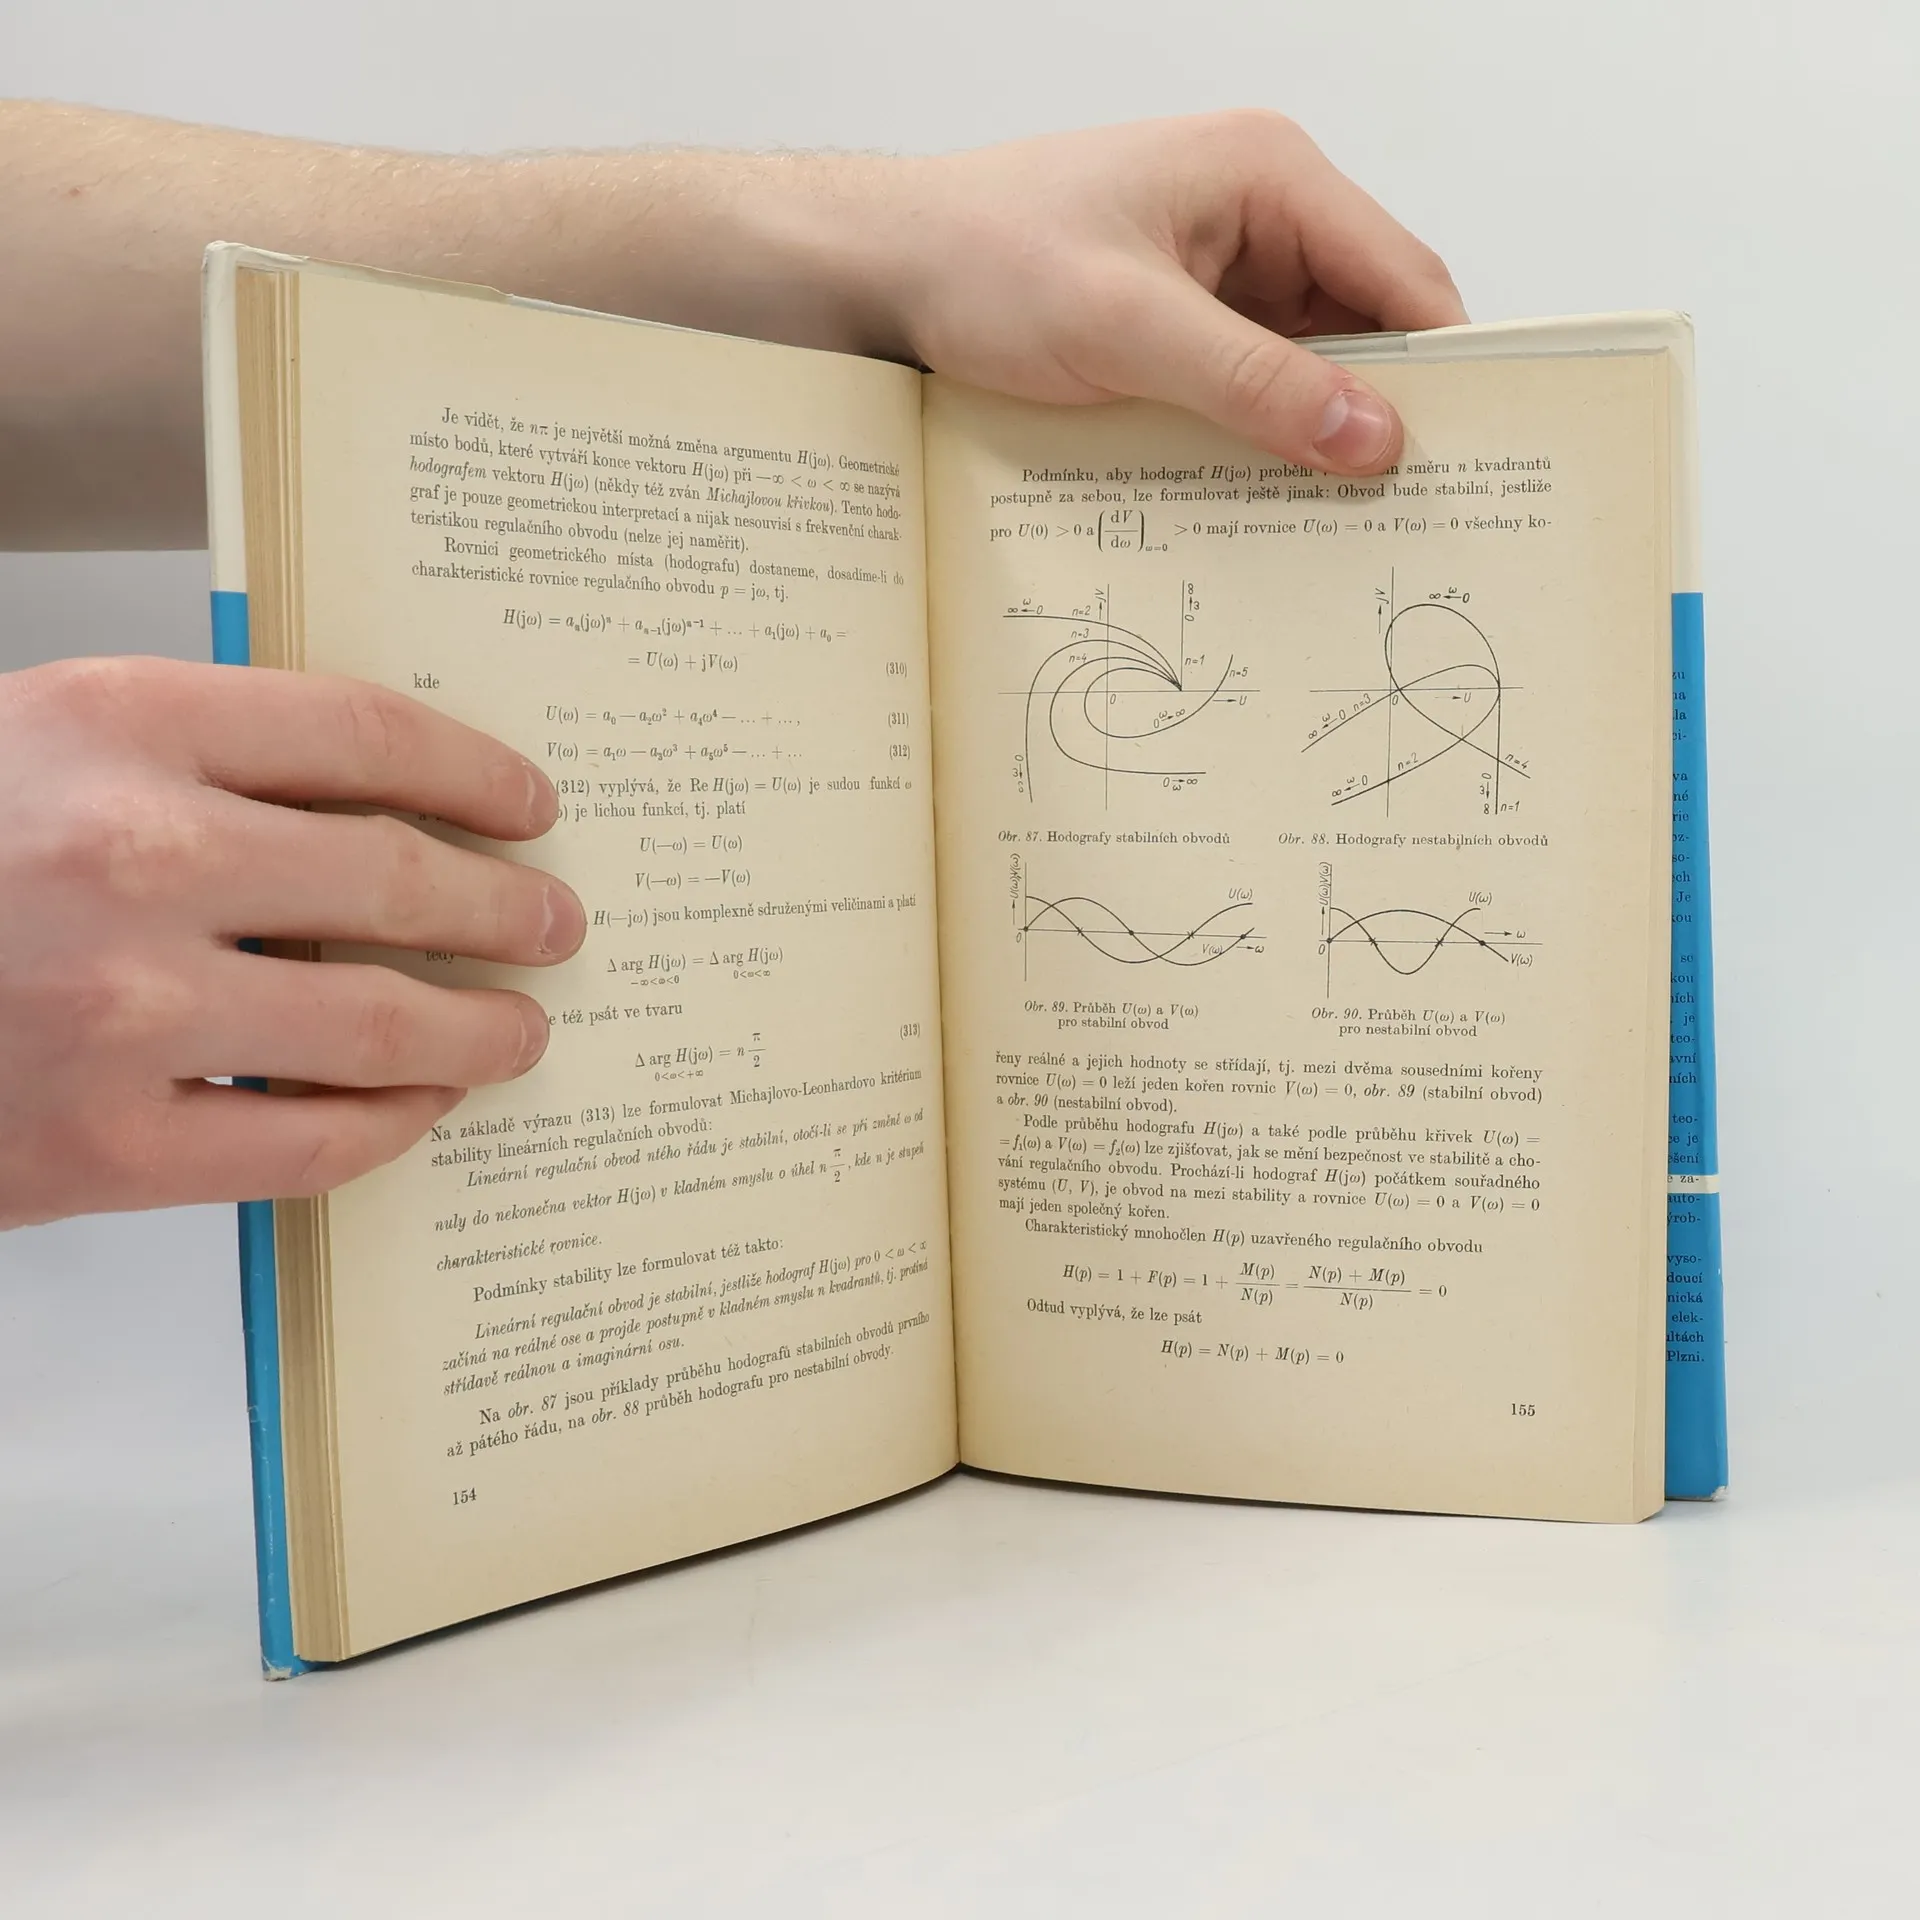 Je vidět, že nπ je největší možná změna argumentu H(jω). Geometrické
místo bodů, které vytváří konce vektoru H(jω) při —∞ < ω < ∞ se nazývá
hodografem vektoru H(jω) (někdy též zván Michajlovou křivkou). Tento hodo-
graf je pouze geometrickou interpretací a nijak nesouvisí s frekvenční charak-
teristikou regulačního obvodu (nelze jej naměřit).
Rovnici geometrického místa (hodografu) dostaneme, dosadíme-li do
charakteristické rovnice regulačního obvodu p = jω, tj.
H(jω) = aₙ(jω)ⁿ + aₙ₋₁(jω)ⁿ⁻¹ + ... + a₁(jω) + a₀ =
= U(ω) + jV(ω) (310)
kde
U(ω) = a₀ — a₂ω² + a₄ω⁴ — ... + ..., (311)
V(ω) = a₁ω — a₃ω³ + a₅ω⁵ — ... + ... (312)
(312) vyplývá, že Re H(jω) = U(ω) je sudou funkcí ω
je lichou funkcí, tj. platí
U(—ω) = U(ω)
V(—ω) = —V(ω)
H(—jω) jsou komplexně sdruženými veličinami a platí
tedy
Δ arg H(jω) = Δ arg H(jω)
—∞<ω<0 0<ω<∞
též psát ve tvaru
Δ arg H(jω) = n π/2 (313)
0<ω<+∞
Na základě výrazu (313) lze formulovat Michajlovo-Leonhardovo kritérium
stability lineárních regulačních obvodů:
Lineární regulační obvod ntého řádu je stabilní, otočí-li se při změně ω od
nuly do nekonečna vektor H(jω) v kladném smyslu o úhel n π/2, kde n je stupeň
charakteristické rovnice.
Podmínky stability lze formulovat též takto:
Lineární regulační obvod je stabilní, jestliže hodograf H(jω) pro 0 < ω < ∞
začíná na reálné ose a projde postupně v kladném smyslu n kvadrantů, tj. protíná
střídavě reálnou a imaginární osu.
Na obr. 87 jsou příklady průběhu hodografů stabilních obvodů prvního
až pátého řádu, na obr. 88 průběh hodografu pro nestabilní obvody.
154
Podmínku, aby hodograf H(jω) proběhl směru n kvadrantů
postupně za sebou, lze formulovat ještě jinak: Obvod bude stabilní, jestliže
pro U(0) > 0 a (dV/dω)ω=0 > 0 mají rovnice U(ω) = 0 a V(ω) = 0 všechny ko-
∞ ← 0 ω n=2 jV ∞ ω 0
n=3
n=4 n=1 n=5
0 U
0 ω ∞
0 ω ∞ 0 ω ∞
jV ∞ ← 0 ω
0 U
∞ ← 0 ω n=3
∞ ← 0 ω n=2 n=4
0 ω ∞ n=1
Obr. 87. Hodografy stabilních obvodů
Obr. 88. Hodografy nestabilních obvodů
U(ω)V(ω) U(ω)
0 V(ω) ω
U(ω)V(ω) U(ω)
0 ω V(ω)
Obr. 89. Průběh U(ω) a V(ω)
pro stabilní obvod
Obr. 90. Průběh U(ω) a V(ω)
pro nestabilní obvod
řeny reálné a jejich hodnoty se střídají, tj. mezi dvěma sousedními kořeny
rovnice U(ω) = 0 leží jeden kořen rovnic V(ω) = 0, obr. 89 (stabilní obvod)
a obr. 90 (nestabilní obvod).
Podle průběhu hodografu H(jω) a také podle průběhu křivek U(ω) =
= f₁(ω) a V(ω) = f₂(ω) lze zjišťovat, jak se mění bezpečnost ve stabilitě a cho-
vání regulačního obvodu. Prochází-li hodograf H(jω) počátkem souřadného
systému (U, V), je obvod na mezi stability a rovnice U(ω) = 0 a V(ω) = 0
mají jeden společný kořen.
Charakteristický mnohočlen H(p) uzavřeného regulačního obvodu
H(p) = 1 + F(p) = 1 + M(p)/N(p) = N(p) + M(p)/N(p) = 0
Odtud vyplývá, že lze psát
H(p) = N(p) + M(p) = 0
155
Je
so
je
teo-
je
za-
auto-
výrob-
vyso-
doucí
elek-
Plzni.